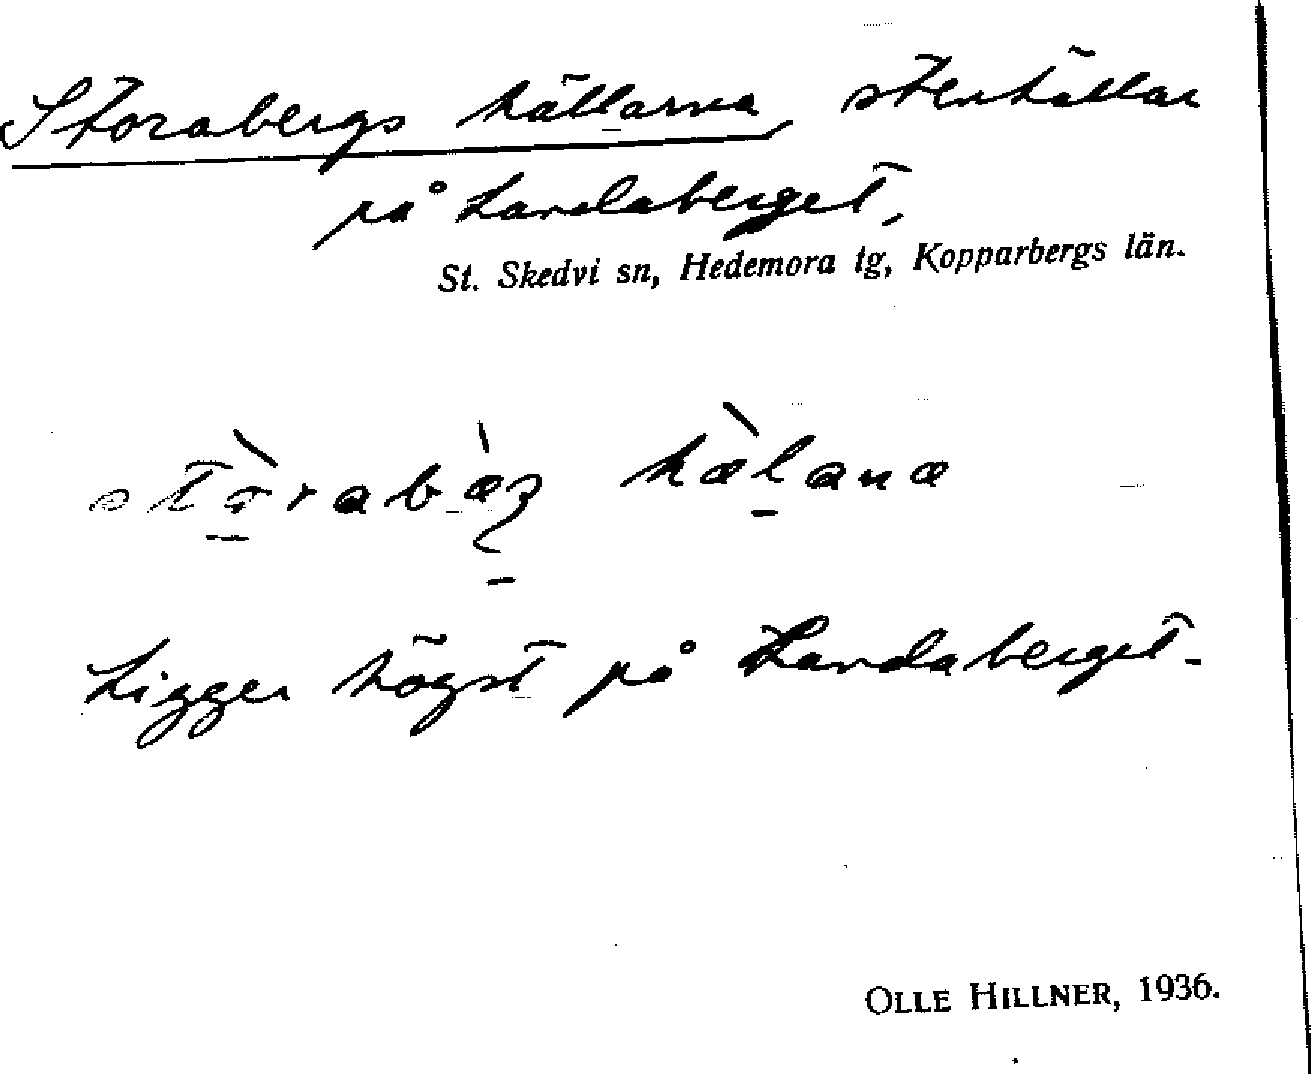 Storabergs hällarna, stenhällar
på Landaberget,
St. Skedvi sn, Hedemora tg, Kopparbergs län.
Ligger högst på Landaberget.
OLLE HILLNER, 1936.